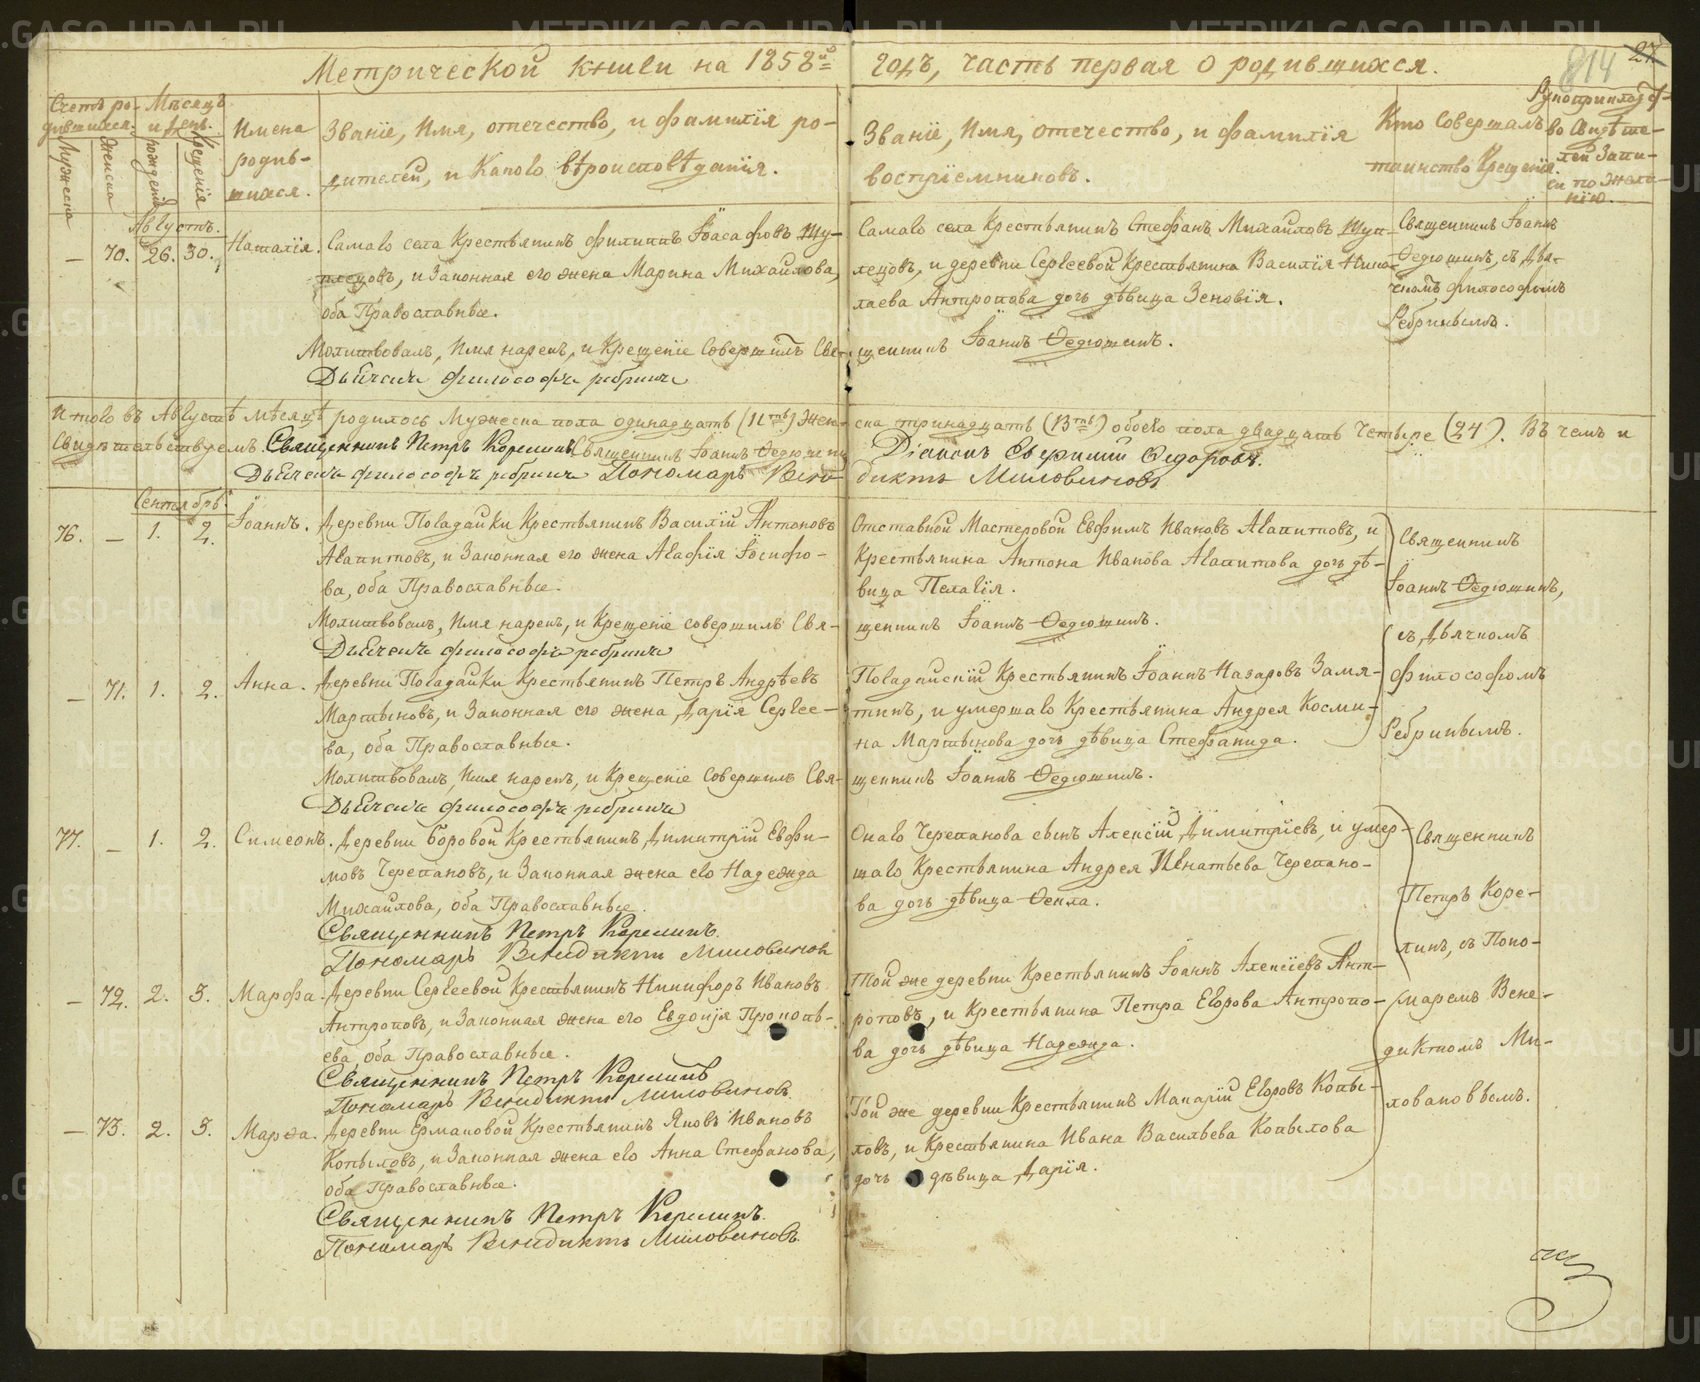 Метрической книги на 1858й годъ, часть первая о родившихся.
814
27
Счетъ ро-
дившихся.
Мѣсяцъ
и день.
Мужеска
Женска
рожденія
крещенія
Имена
родив-
шихся.
Званіе, имя, отечество, и фамилія ро-
дителей, и какого вѣроисповѣданія.
Званіе, имя, отечество, и фамилія
воспріемниковъ.
Кто совершалъ
таинство крещенія.
Рукоприкладс-
во свидѣте-
лей запи-
си по жела-
нію.
Августъ.
— 70. 26. 30. Наталія.
Самаго села Крестьянинъ Филиппъ Іоасафовъ Шу-
плецовъ, и Законная его жена Марина Михайлова,
оба Православные.
Молитвовалъ, имя нарекъ, и крещеніе совершилъ Свя-
щенникъ Іоаннъ Ѳедюшинъ.
Дьячекъ философъ ребринъ
Самаго села Крестьянинъ Стефанъ Михайловъ Шуп-
лецовъ, и деревни Сергеевой Крестьянина Василія Нико-
лаева Антропова дочь дѣвица Зеновія.
Священникъ Іоаннъ
Ѳедюшинъ, съ Дья-
чкомъ Философомъ
Ребринымъ.
Итого въ Августѣ мѣсяцѣ родилось Мужеска пола одинадцать (11ть) Жен-
ска тринадцать (13ть) обоего пола двадцать четыре (24). Въ чемъ и
Свидѣтельствуемъ. Священникъ Петръ Корелинъ Священникъ Іоаннъ Ѳедюшинъ
Діаконъ Евфимій Ѳедоровъ.
Дьячекъ философъ ребринъ Пономарь Вени-
диктъ Миловановъ
Сентябрь.
76. — 1. 2. Іоаннъ.
Деревни Погадайки Крестьянинъ Василій Антоновъ
Агапитовъ, и Законная его жена Агафія Іосифо-
ва, оба Православные.
Молитвовалъ, имя нарекъ, и крещеніе совершилъ Свя-
щенникъ Іоаннъ Ѳедюшинъ.
Дьячекъ философъ ребринъ
Отставной Мастеровой Евфимъ Ивановъ Агапитовъ, и
Крестьянина Антона Иванова Агапитова дочь дѣ-
вица Пелагія.
Священникъ
Іоаннъ Ѳедюшинъ,
съ Дьячкомъ
Философомъ
Ребринымъ.
— 71. 1. 2. Анна.
Деревни Погадайки Крестьянинъ Петръ Андрѣевъ
Мартыновъ, и Законная его жена Дарія Сергее-
ва, оба Православные.
Молитвовалъ, имя нарекъ, и крещеніе совершилъ Свя-
щенникъ Іоаннъ Ѳедюшинъ.
Дьячекъ философъ ребринъ
Погадайскій Крестьянинъ Іоаннъ Назаровъ Замя-
тинъ, и умершаго Крестьянина Андрея Косми-
на Мартынова дочь дѣвица Стефанида.
77. — 1. 2. Симеонъ.
Деревни Боровой Крестьянинъ Димитрій Евфи-
мовъ Черепановъ, и Законная жена его Надежда
Михайлова, оба Православные.
Священникъ Петръ Корелинъ.
Пономарь Венидиктъ Миловановъ
Онаго Черепанова сынъ Алексій Димитріевъ, и умер-
шаго Крестьянина Андрея Игнатьева Черепано-
ва дочь дѣвица Ѳекла.
Священникъ
Петръ Коре-
линъ, съ Поно-
маремъ Вене-
диктомъ Ми-
ловановымъ.
— 72. 2. 3. Марфа.
Деревни Сергеевой Крестьянинъ Никифоръ Ивановъ
Антроповъ, и Законная жена его Евдокія Прокопь-
ева, оба Православные.
Священникъ Петръ Корелинъ
Пономарь Венидиктъ Миловановъ.
Той же деревни Крестьянинъ Іоаннъ Алексіевъ Ант-
роповъ, и Крестьянина Петра Егорова Антропо-
ва дочь дѣвица Надежда.
— 73. 2. 3. Марѳа.
Деревни Ермаковой Крестьянинъ Яковъ Ивановъ
Копыловъ, и Законная жена его Анна Стефанова,
оба Православные.
Священникъ Петръ Корелинъ.
Пономарь Венидиктъ Миловановъ.
Той же деревни Крестьянинъ Макарій Егоровъ Копы-
ловъ, и Крестьянина Ивана Васильева Копылова
дочь дѣвица Дарія.
METRIKI.GASO-URAL.RU